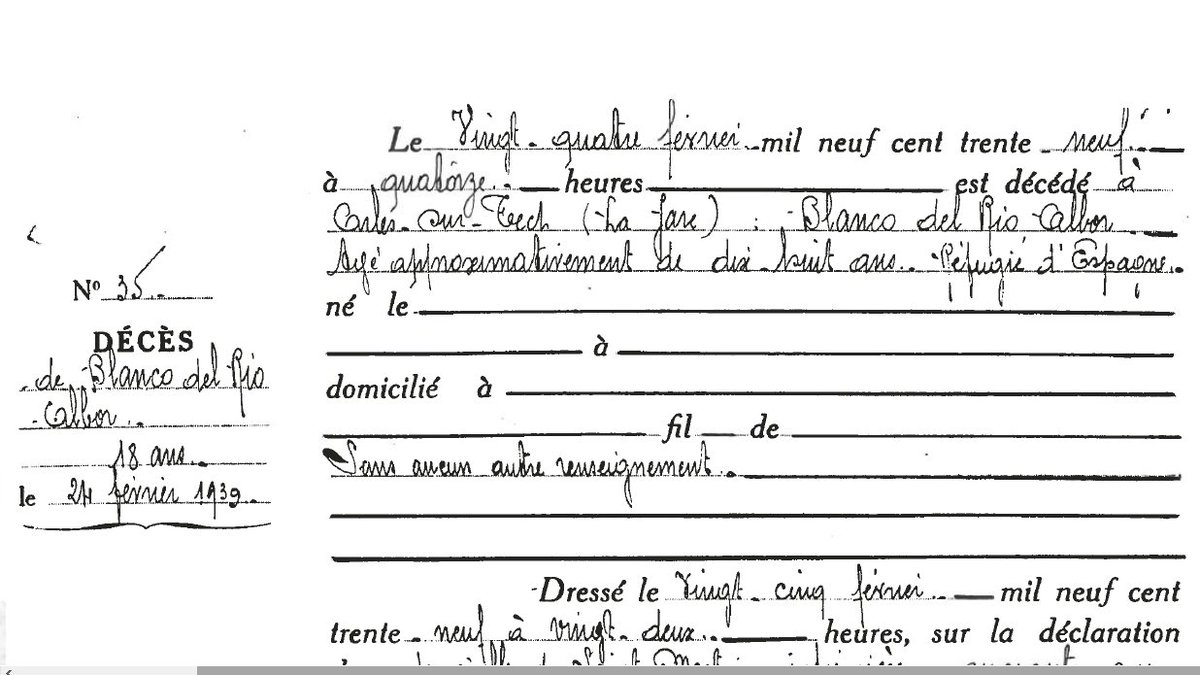 Nº 35
DÉCÈS
de Blanco del Rio
Calbor
18 ans
le 24 février 1939
Le Vingt-quatre février mil neuf cent trente neuf
à quatorze heures est décédé à
Arles-sur-Tech (La Fare) : Blanco del Rio Calbor
Agé approximativement de dix huit ans. Réfugié d'Espagne
né le
à
domicilié à
fil de
Sans aucun autre renseignement.
Dressé le Vingt-cinq février mil neuf cent
trente-neuf à vingt-deux heures, sur la déclaration